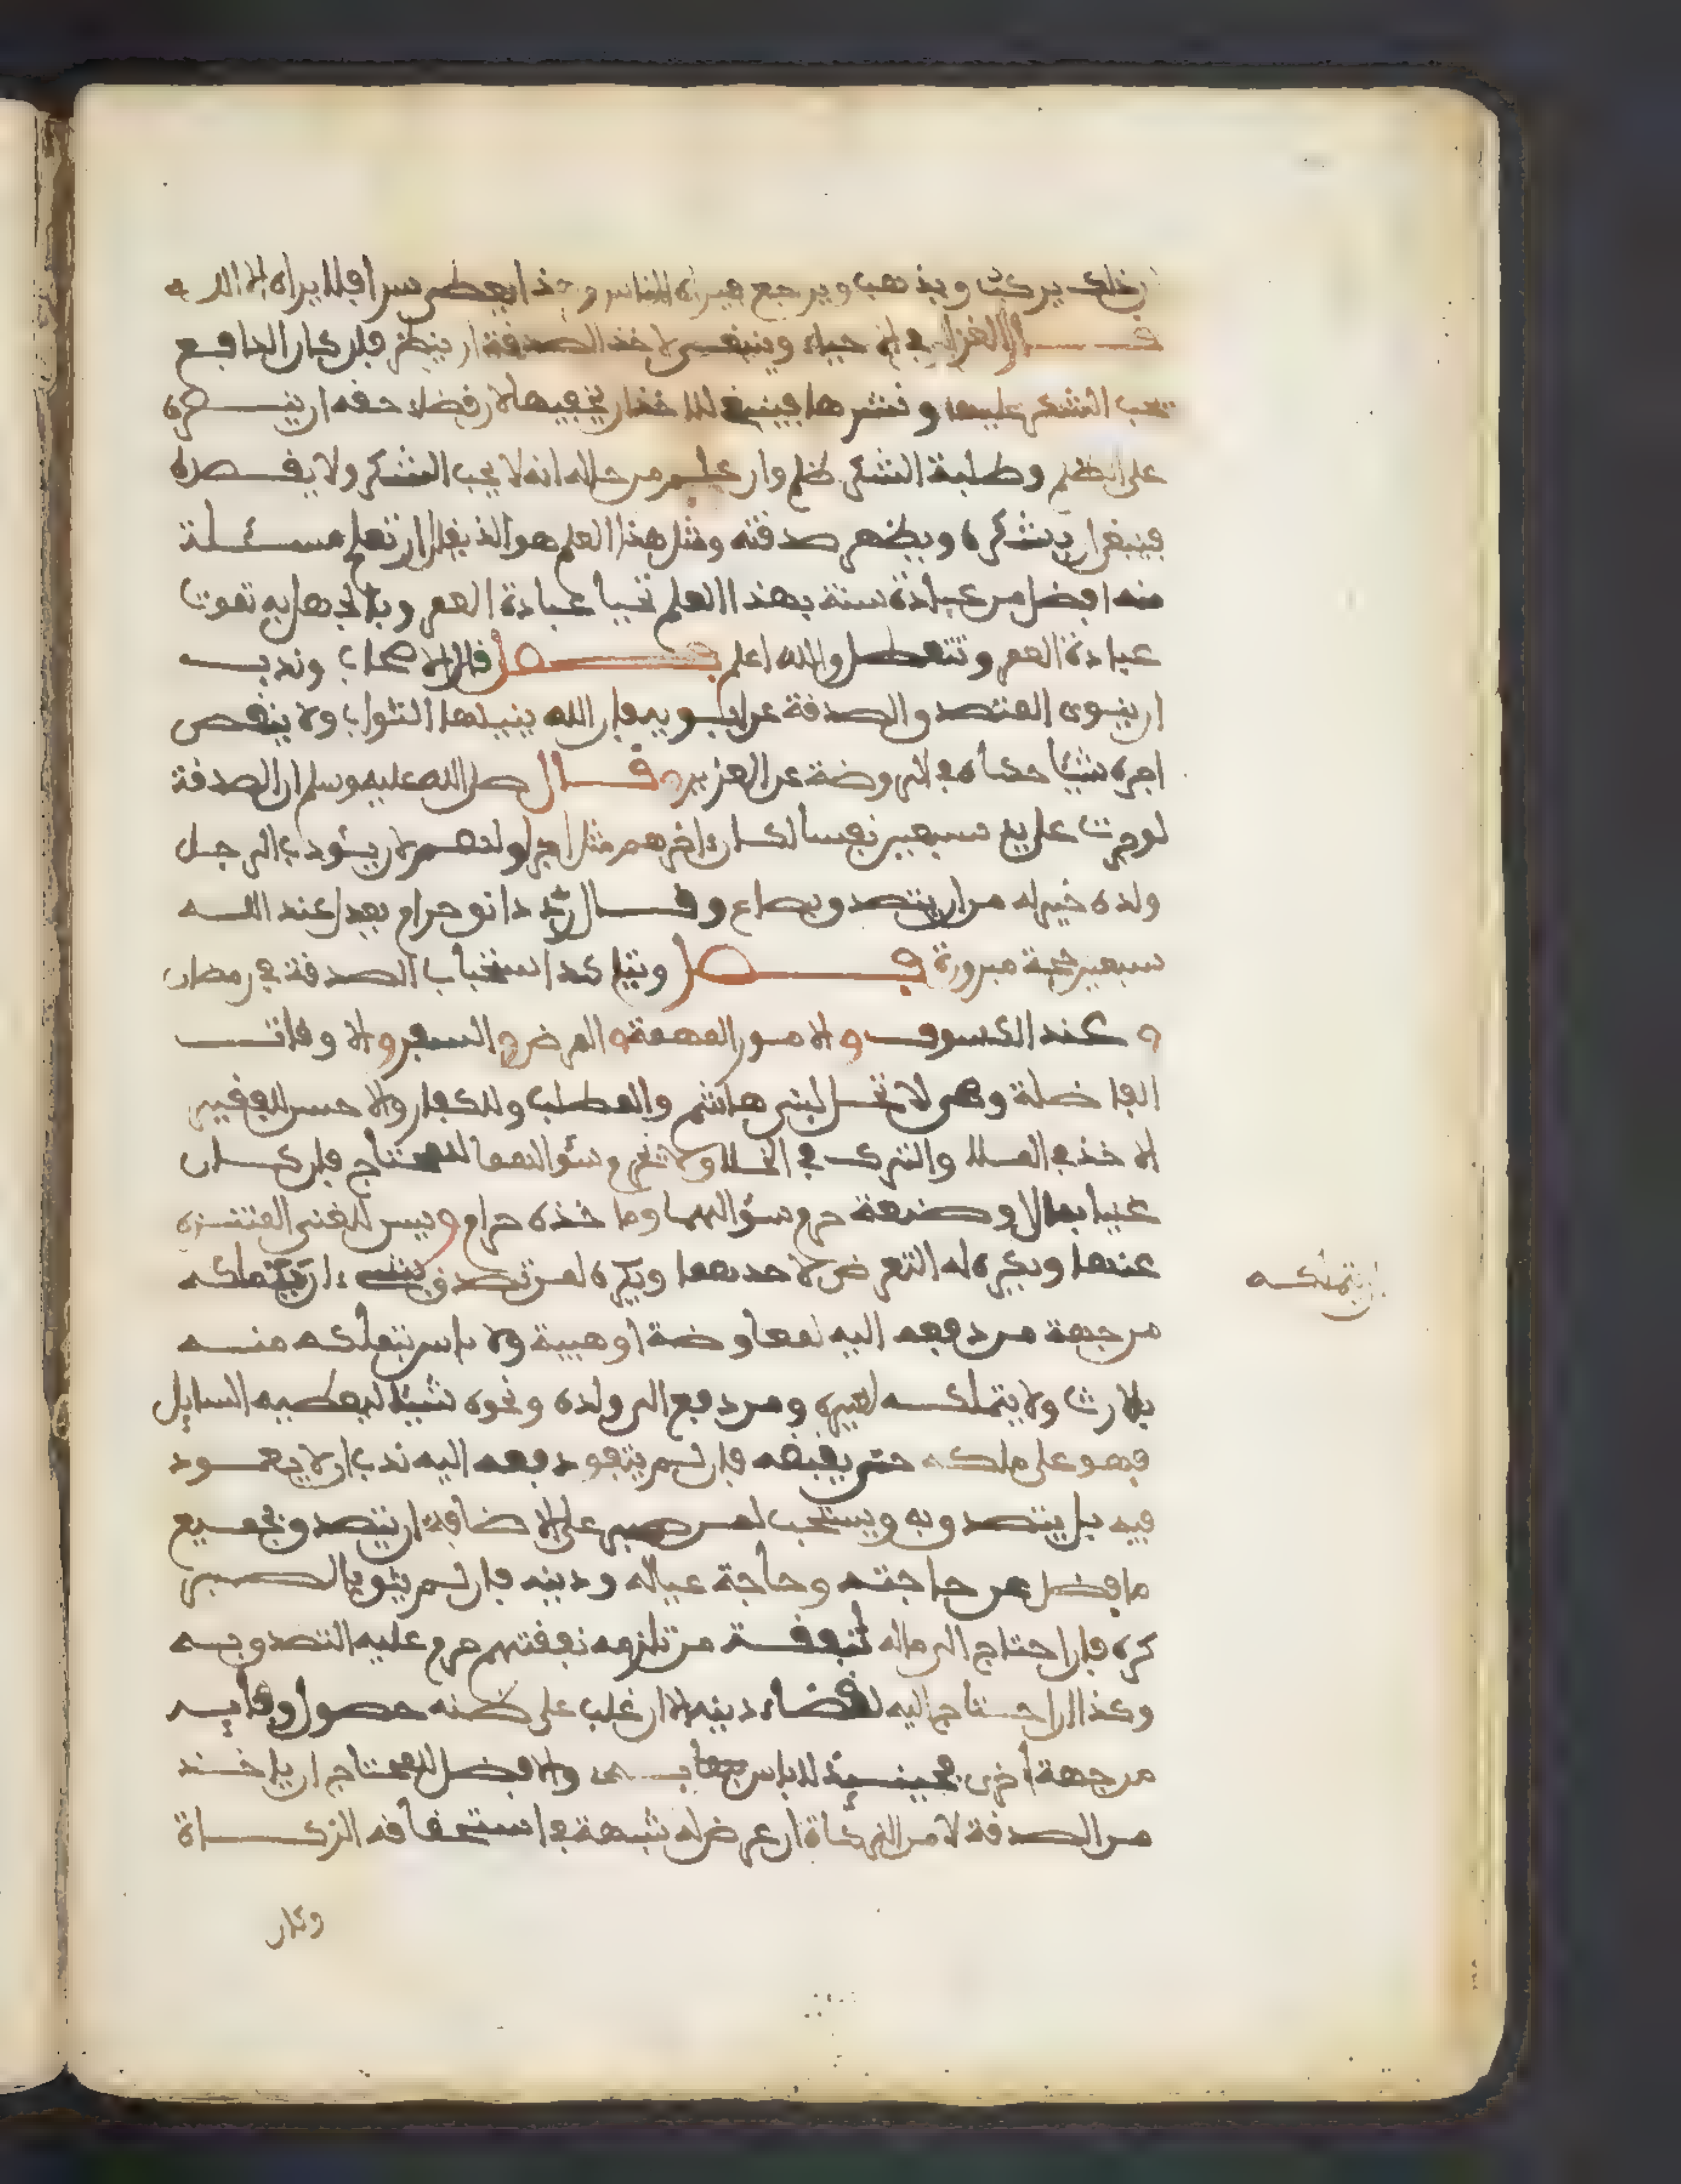 ذلك يركب ويذهب ويرجع فيراه الناس وهذا يعطي سرا فلا يراه الا الله
قال الغزالي في الاحياء وينبغي لاخذ الصدقة ان ينظر فان كان الدافع
يحب الشكر عليها ونشرها فينبغي للاخذ ان يخفيها لان قضاء حقه ان ينصره
على الظلم وطلبة الشكر ظلم وان علم من حاله انه لا يحب الشكر ولا يقصده
فينبغي ان يشكره ويظهر صدقته ومثل هذا العلم هو الذي يقال ان تعلم مسئلة
منه افضل من عبادة سنة بهذا العلم تحيا عبادة العمر وبالجهل به تموت
عبادة العمر وتتعطل والله اعلم فصل قال الاصحاب وندب
ان ينوي المتصدق الصدقة عن ابويه فان الله ينيلهما الثواب ولا ينقص
اجره شيئا حكاه في الروضة عن العزيز وقال صلى الله عليه وسلم ان الصدقة
لو جرت على يد سبعين نفسا لكان اخرهم مثل اجر اولهم لان يؤدب الرجل
ولده خير له من ان يتصدق بصاع وقال رد دانق حرام يعدل عند الله
سبعين حجة مبرورة فصل ويتاكد استحباب الصدقة في رمضان
وعند الكسوف والامور المهمة والمرض والسفر والاوقات
الفاضلة وهي لا تحل لبني هاشم والمطلب وللكفار والاحسن للفقير
الاخذ في الملا والترك في الخلا ولا تحرم سؤالهما للمحتاج فان كان
غنيا بمال او صنعة حرم سؤالهما وما خذه حرام ويسن للغني التنزه
عنها ويكره له التعرض لاحدهما ويكره لمن تصدق بشيء ان يتملكه
من جهة من دفعه اليه لمعاوضة او هيبة ولا باس بتملكه منه
بالارث ولا يتملكه لغيره ومن دفع الى ولده ونحوه شيئا ليعطيه السايل
فهو على ملكه حتى يقبضه فان لم يتفق دفعه اليه ندب ان لا يعود
فيه بل يتصدق به ويستحب لمن صبر على الاضافة ان يتصدق بجميع
ما فضل عن حاجته وحاجة عياله ودينه فان لم يثق بالصبر
كره فان احتاج الى ماله لنفقة من تلزمه نفقتهم حرم عليه التصدق به
وكذا ان احتاج اليه لقضاء دينه الا ان غلب على ظنه حصول وفايه
من جهة اخرى فحينئذ لا باس والافضل للمحتاج ان ياخذ
من الصدقة لا من الزكاة ان عرض له شبهة في استحقاقه الزكاة
ان يتملكه
وكان